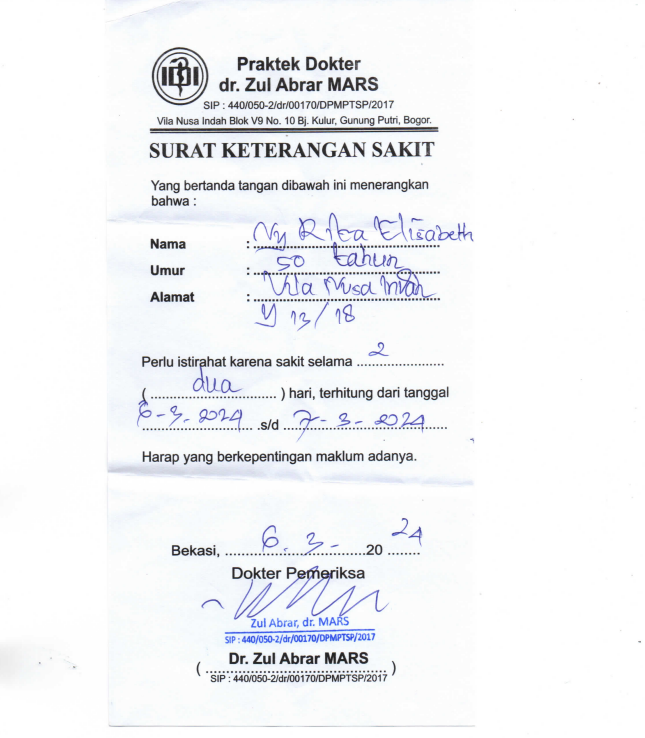 Praktek Dokter
dr. Zul Abrar MARS
SIP : 440/050-2/dr/00170/DPMPTSP/2017
Vila Nusa Indah Blok V9 No. 10 Bj. Kulur, Gunung Putri, Bogor.
SURAT KETERANGAN SAKIT
Yang bertanda tangan dibawah ini menerangkan
bahwa :
Nama : Ny Rita Elisabeth
Umur : 50 tahun
Alamat : Vila Nusa Indah
Y 13/18
Perlu istirahat karena sakit selama 2
( dua ) hari, terhitung dari tanggal
6-3-2024 s/d 7-3-2024
Harap yang berkepentingan maklum adanya.
Bekasi, 6.3- 20 24
Dokter Pemeriksa
Zul Abrar, dr. MARS
SIP : 440/050-2/dr/00170/DPMPTSP/2017
Dr. Zul Abrar MARS
( )
SIP : 440/050-2/dr/00170/DPMPTSP/2017